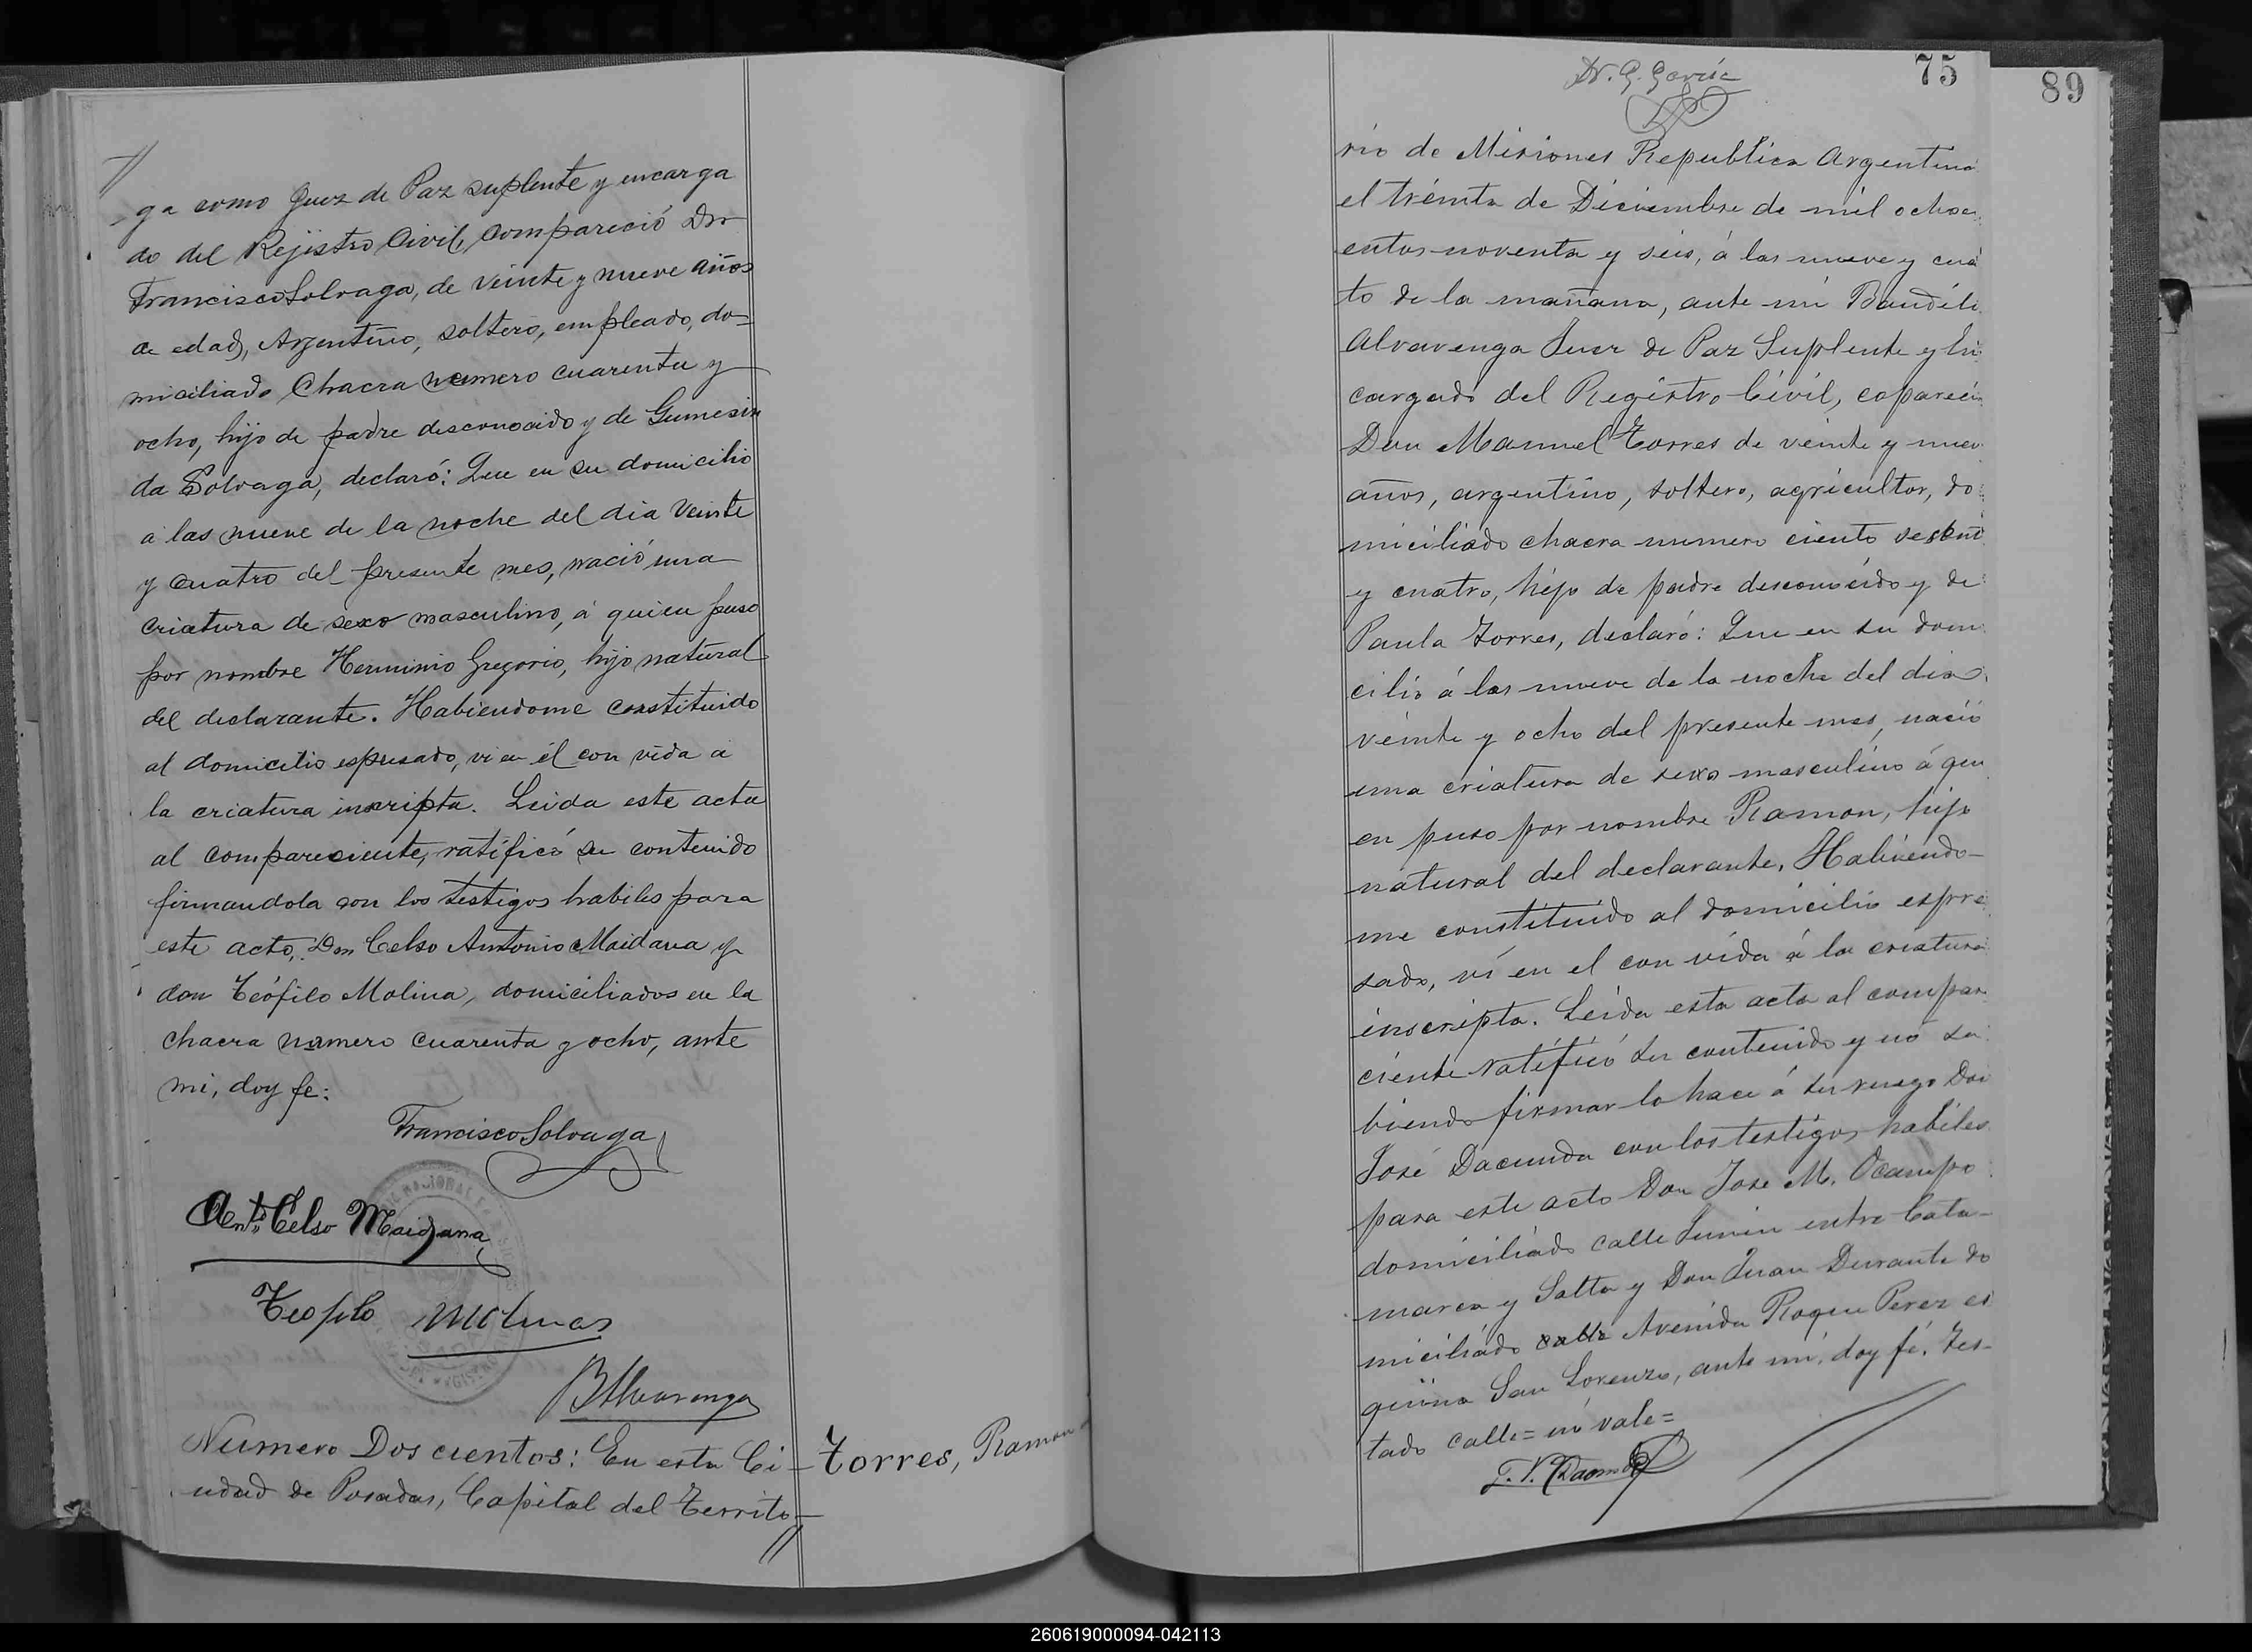 ga como Juez de Paz suplente y encarga
do del Rejistro Civil, compareció Don
Francisco Solvaga, de veinte y nueve años
de edad, Argentino, soltero, empleado, do-
miciliado Chacra numero cuarenta y
ocho, hijo de padre desconocido y de Gumesin
da Solvaga, declaró: Que en su domicilio
a las nueve de la noche del dia veinte
y cuatro del presente mes, nació una
criatura de sexo masculino, á quien puso
por nombre Herminio Gregorio, hijo natural
del declarante. Habiendome constituido
al domicilio espresado, vi en él con vida a
la criatura inscripta. Leida este acta
al compareciente, ratificó su contenido
firmandola con los testigos habiles para
este acto, Don Celso Antonio Maidana y
don Teófilo Molina, domiciliados en la
chacra numero cuarenta y ocho, ante
mi, doy fe:
Francisco Solvaga
Ant.º Celso Maidana
Teofilo Molinas
BAlvarenga
Numero Dos cientos: En esta Ci-
udad de Posadas, Capital del Territo-
Torres, Ramon
Dr. G. García
75
89
rio de Misiones Republica Argentina
el treinta de Diciembre de mil ochoci
entos noventa y seis, á las nueve y cua
to de la mañana, ante mi Baudili
Alvarenga Juez de Paz Suplente y En
cargado del Registro Civil, compareció
Don Manuel Torres de veinte y nuev
años, argentino, soltero, agricultor, do
miciliado chacra numero ciento sesent
y cuatro, hijo de padre desconocido y de
Paula Torres, declaró: Que en su domi
cilio á las nueve de la noche del dia
veinte y ocho del presente mes, nació
una criatura de sexo masculino á qui
en puso por nombre Ramon, hijo
natural del declarante. Habiendo-
me constituido al domicilio espre
sado, ví en el con vida á la criatura
inscripta. Leida esta acta al compare
ciente ratificó su contenido y nó sa
biendo firmar lo hace á su ruego Don
José Dacunda con los testigos habiles
para este acto Don Jose M. Ocampo
domiciliado calle Junin entre Cata-
marca y Salta y Don Juan Durante do
miciliado calle Avenida Roque Perez es
quina San Lorenzo, ante mi, doy fé. Tes-
tado calle= nó vale=
260619000094-042113